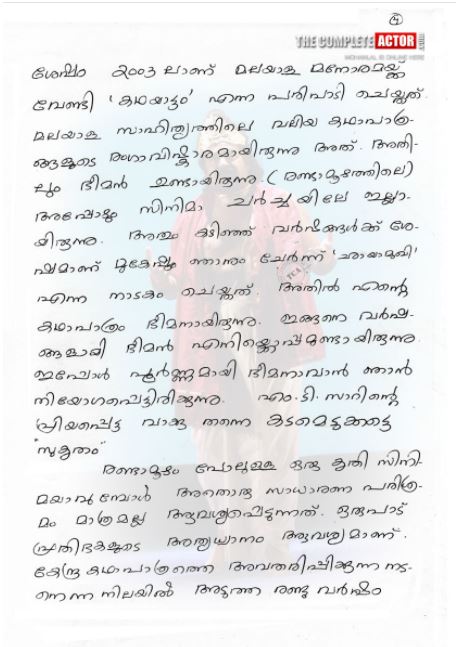 ④
THE COMPLETE ACTOR.COM
MOHANLAL IS ONLINE HERE
ശേഷം 2003 ലാണ് മലയാള മനോരമയ്ക്ക്
വേണ്ടി 'കഥയാട്ടം' എന്ന പരിപാടി ചെയ്തത്.
മലയാള സാഹിത്യത്തിലെ വലിയ കഥാപാത്ര-
ങ്ങളുടെ രംഗാവിഷ്കാരമായിരുന്നു അത്. അതി-
ലും ഭീമൻ ഉണ്ടായിരുന്നു. (രണ്ടാമൂഴത്തിലെ)
അപ്പോഴും സിനിമാ ചർച്ചയിലേ ഇല്ലാ-
യിരുന്നു. അതും കഴിഞ്ഞ് വർഷങ്ങൾക്ക് ശേ-
ഷമാണ് മുകേഷും ഞാനും ചേർന്ന് 'ഛായാമുഖി'
എന്ന നാടകം ചെയ്തത്. അതിൽ എന്റെ
കഥാപാത്രം ഭീമനായിരുന്നു. ഇങ്ങനെ വർഷ-
ങ്ങളായി ഭീമൻ എനിയ്ക്കൊപ്പമുണ്ടായിരുന്നു.
ഇപ്പോൾ പൂർണ്ണമായി ഭീമനാവാൻ ഞാൻ
നിയോഗപ്പെട്ടിരിക്കുന്നു. എം.ടി. സാറിന്റെ
പ്രിയപ്പെട്ട വാക്കു തന്നെ കടമെടുക്കട്ടെ
"സുകൃതം"
രണ്ടാമൂഴം പോലുള്ള ഒരു കൃതി സിനി-
മയാവുമ്പോൾ അതൊരു സാധാരണ പരിശ്ര-
മം മാത്രമല്ല ആവശ്യപ്പെടുന്നത്. ഒരുപാട്
പ്രതിഭകളുടെ അത്യധ്വാനം ആവശ്യമാണ്.
കേന്ദ്ര കഥാപാത്രത്തെ അവതരിപ്പിക്കുന്ന നട-
നെന്ന നിലയിൽ അടുത്ത രണ്ടു വർഷം